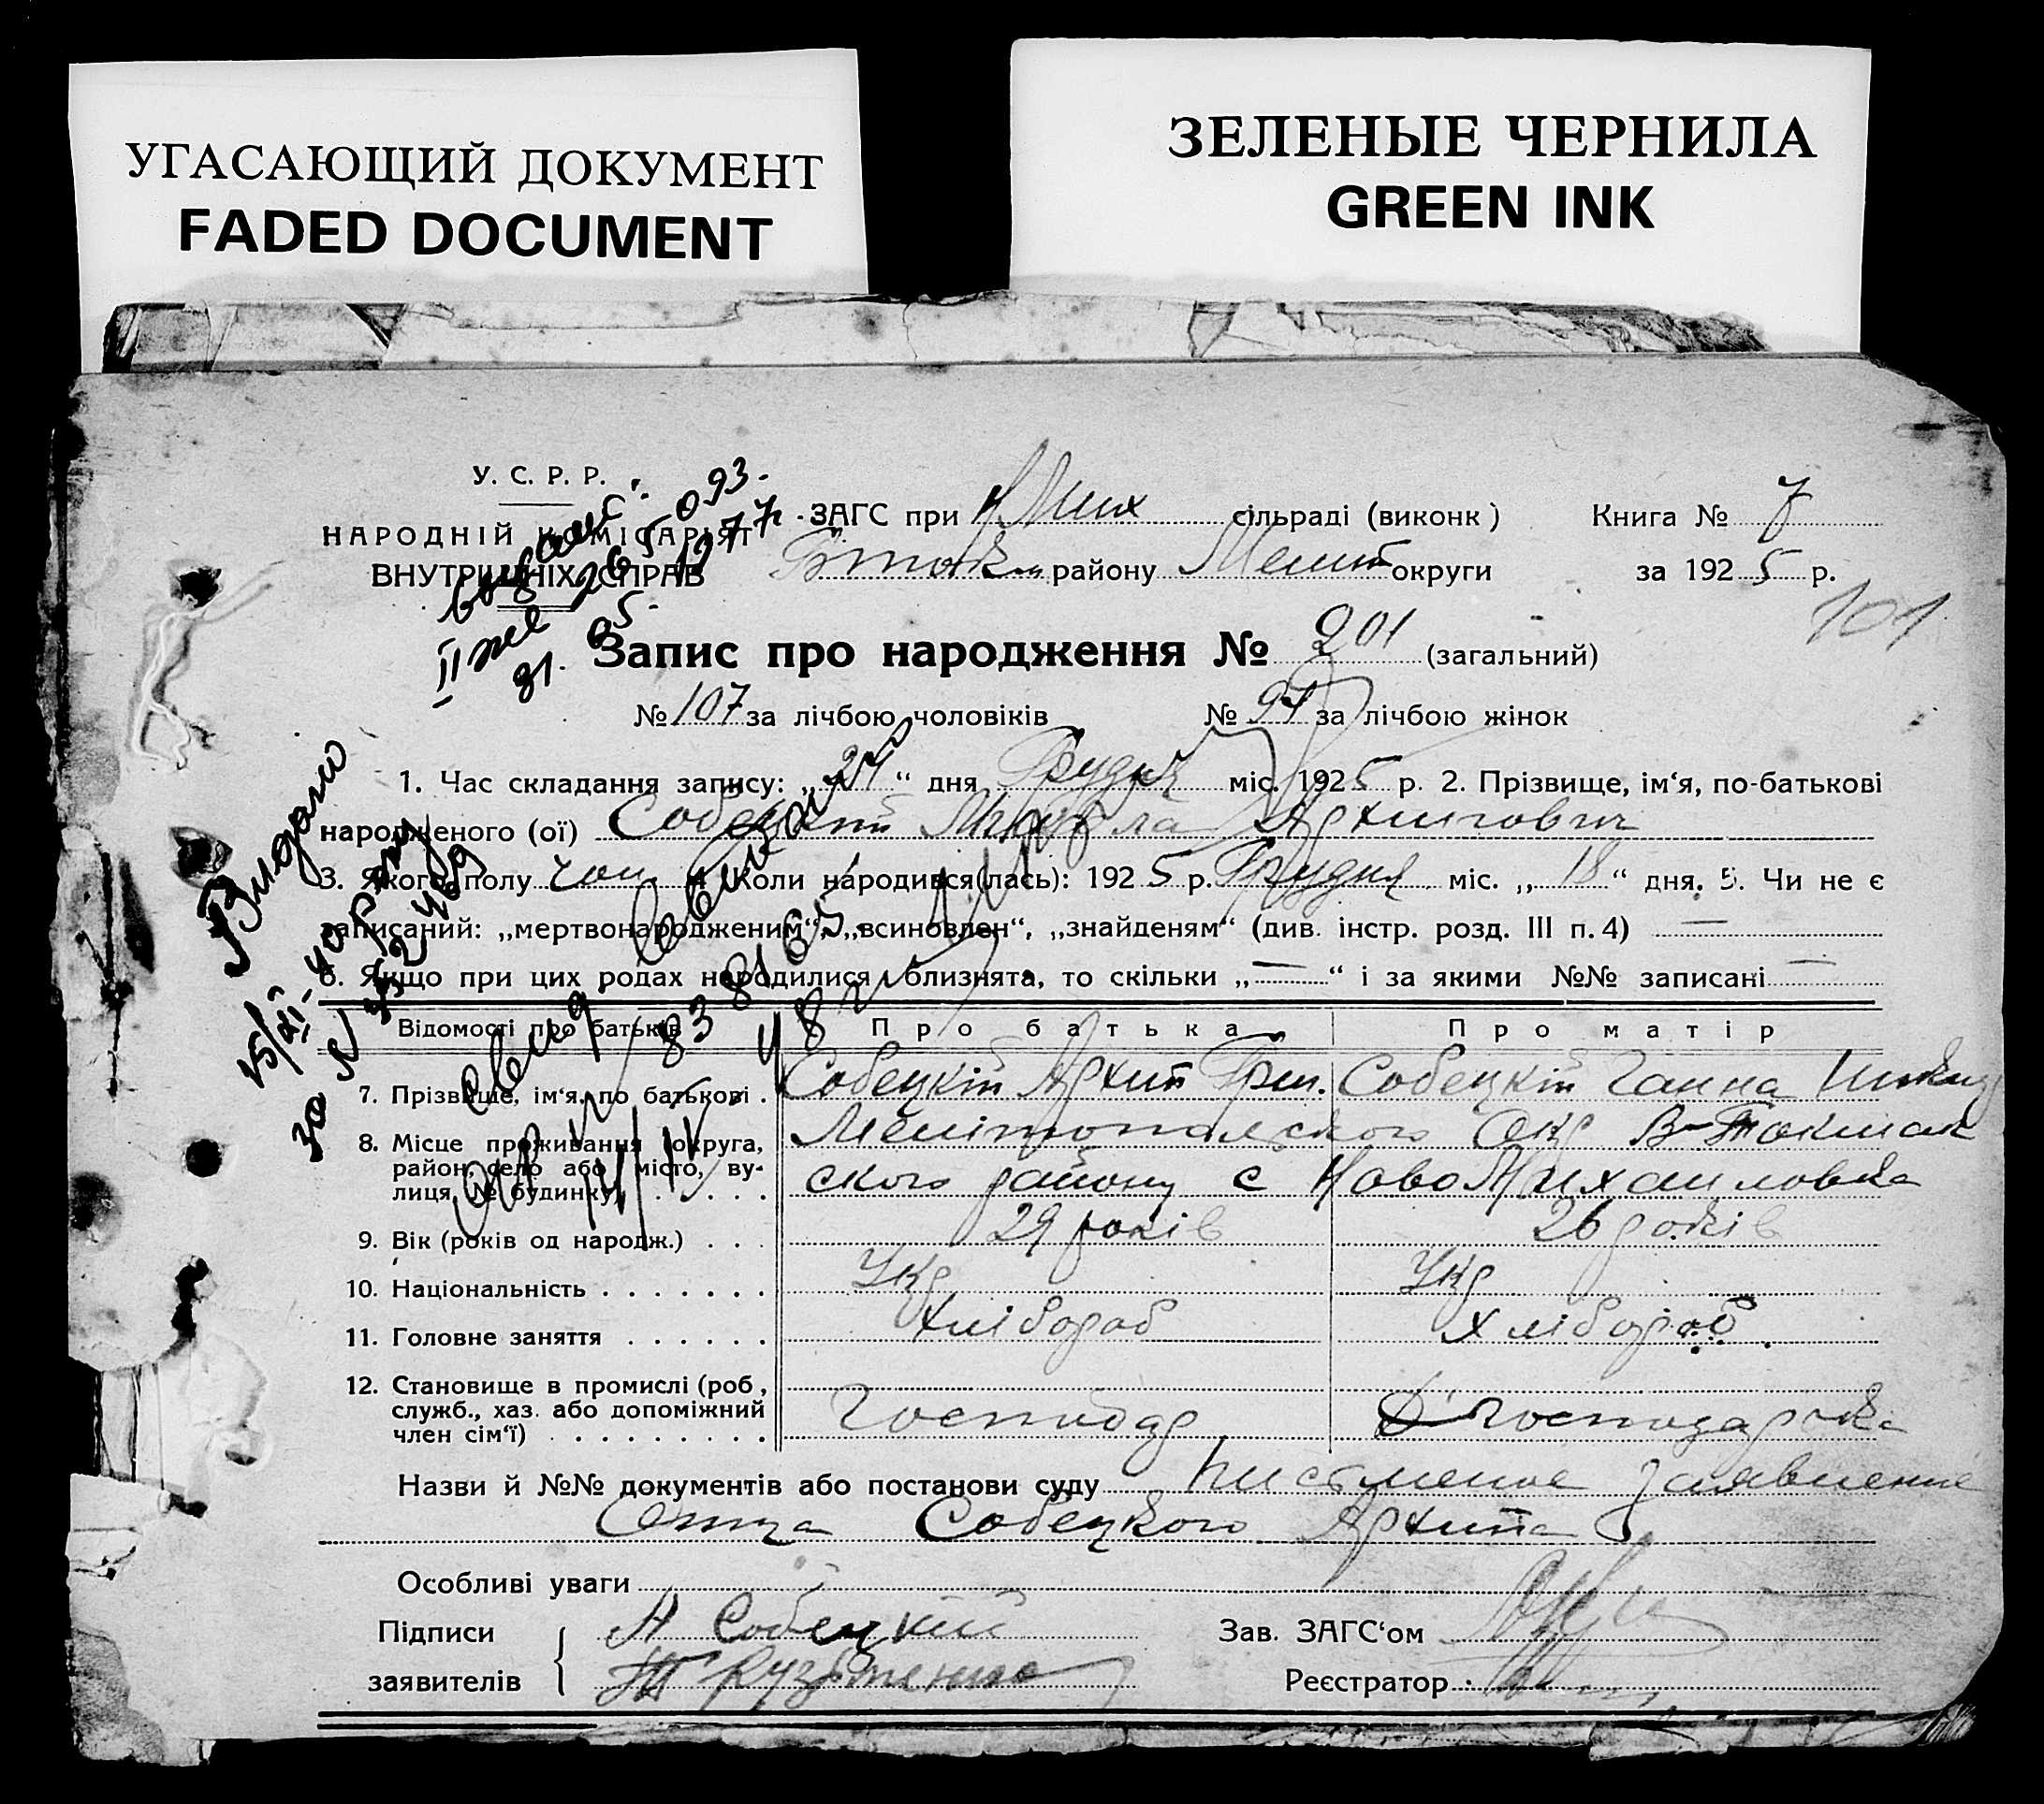 УГАСАЮЩИЙ ДОКУМЕНТ
FADED DOCUMENT
ЗЕЛЕНЫЕ ЧЕРНИЛА
GREEN INK
У. С. Р. Р.
НАРОДНІЙ КОМІСАРІЯТ
ВНУТРІШНІХ СПРАВ
ЗАГС при Н Мих сільраді (виконк) Книга № 7
району Меліт округи за 1925 р.
101
Запис про народження № 201 (загальний)
№ 107 за лічбою чоловіків № 94 за лічбою жінок
1. Час складання запису: „24“ дня Грудня міс. 1925 р. 2. Прізвище, ім‘я, по-батькові
народженого (ої) Собецкий Микола Архипович
3. Якого полу чол 4. Коли народився(лась): 1925 р. Грудня міс. „18“ дня. 5. Чи не є
записаний: „мертвонародженим“, „всиновлен“, „знайденям“ (див. інстр. розд. III п. 4) —
6. Якщо при цих родах народилися близнята, то скільки „—“ і за якими №№ записані —
Видано
Відомості про батьків Про батька Про матір
7. Прізвище, ім‘я, по батькові . Собецкій Архип Григ. Собецкій Ганна
8. Місце проживання округа, Мелітопольского Окр В-Токмак
район, село або місто, ву- ского району с Ново Михаиловка
лиця, № будинку
9. Вік (років од народж.) . . . 29 років 26 років
10. Національність . . . . . . . Укр Укр
11. Головне заняття . . . . . . Хлібороб Хлібороб
12. Становище в промислі (роб,
служб., хаз. або допоміжний Господар Господарка
член сім‘ї) . . . . . . . . .
Назви й №№ документів або постанови суду Писменое заявление
Отца Собецкого Архипа
Особливі уваги
Підписи А Собецкий Зав. ЗАГС‘ом
заявителів Кузьменко Реєстратор